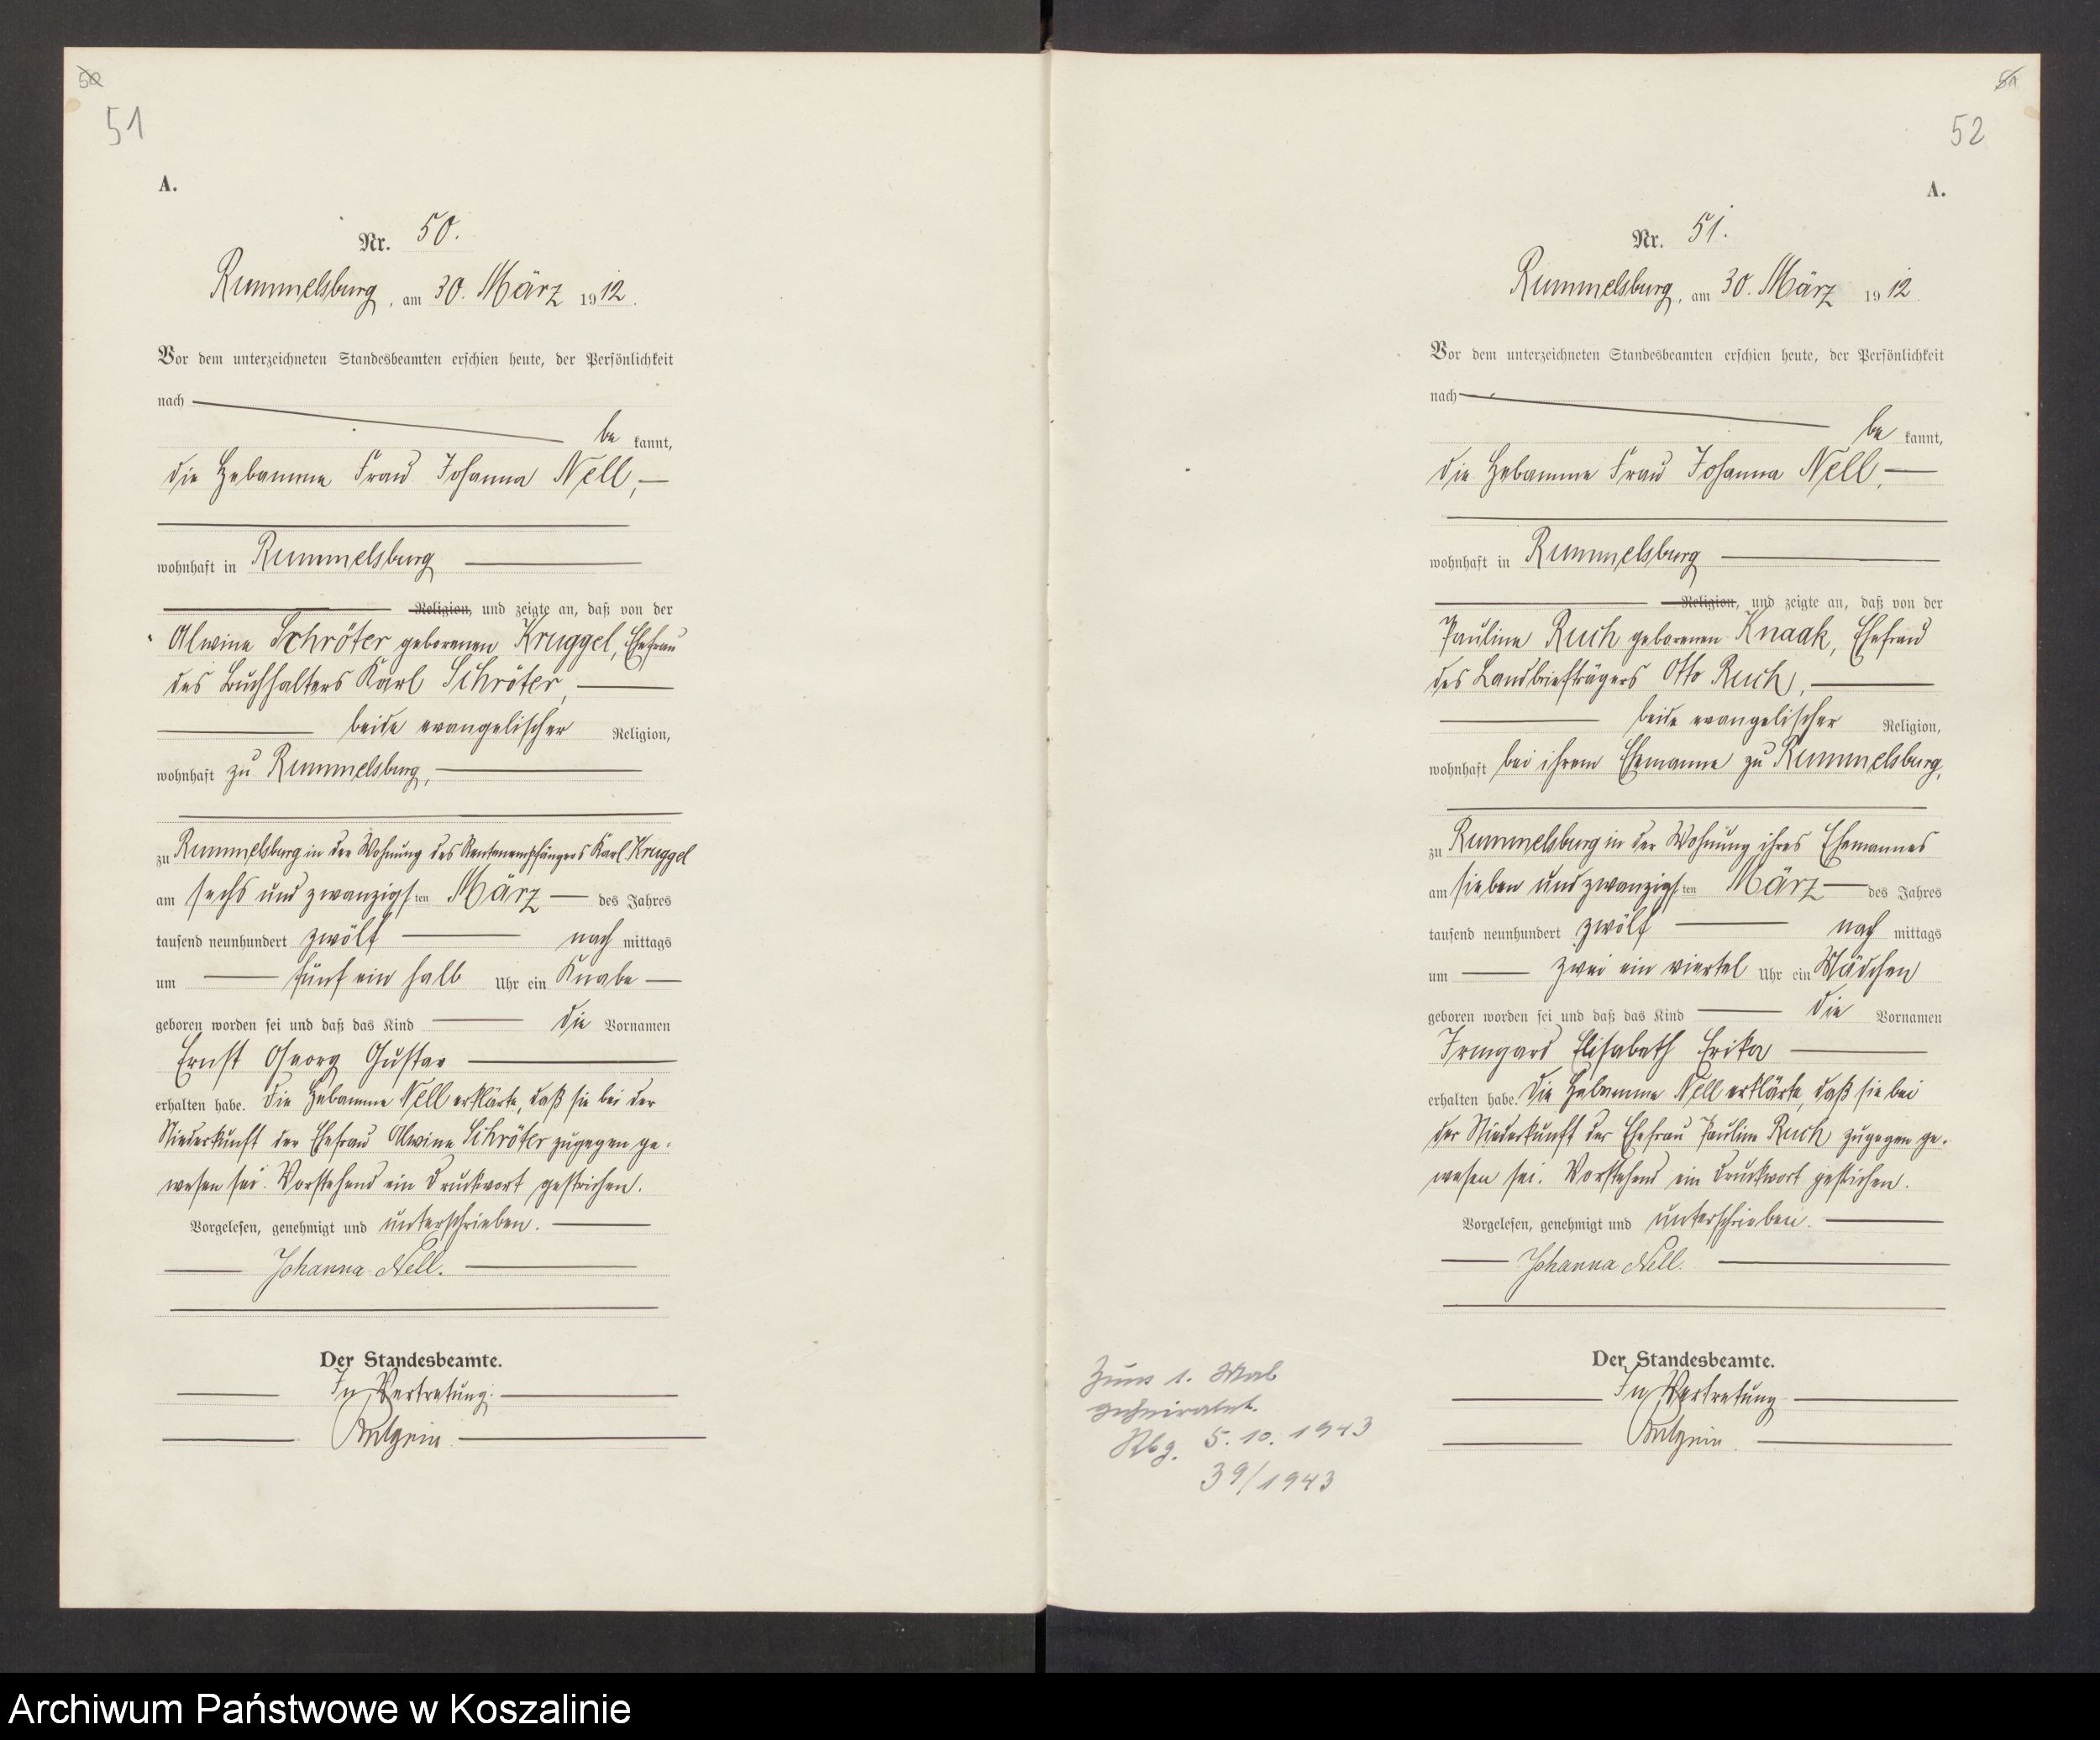 50
51
A.
Nr. 50.
Rummelsburg, am 30. März 1912.
Vor dem unterzeichneten Standesbeamten erschien heute, der Persönlichkeit
nach
be kannt,
die Hebamme Frau Johanna Nell,
wohnhaft in Rummelsburg
Religion, und zeigte an, daß von der
Alwine Schröter geborenen Kruggel, Ehefrau
des Buchhalters Karl Schröter,
beide evangelischer Religion,
wohnhaft zu Rummelsburg,
zu Rummelsburg in der Wohnung des Rentenempfängers Karl Kruggel
am sechs und zwanzigsten März des Jahres
tausend neunhundert zwölf nach mittags
um fünf ein halb Uhr ein Knabe
geboren worden sei und daß das Kind die Vornamen
Ernst Georg Gustav
erhalten habe. Die Hebamme Nell erklärte, daß sie bei der
Niederkunft der Ehefrau Alwine Schröter zugegen ge-
wesen sei. Vorstehend ein Druckwort gestrichen.
Vorgelesen, genehmigt und unterschrieben.
Johanna Nell.
Der Standesbeamte.
In Vertretung:
52
A.
Nr. 51.
Rummelsburg, am 30. März 1912.
Vor dem unterzeichneten Standesbeamten erschien heute, der Persönlichkeit
nach
be kannt,
die Hebamme Frau Johanna Nell,
wohnhaft in Rummelsburg
Religion, und zeigte an, daß von der
Pauline Ruch geborenen Knaak, Ehefrau
des Landbriefträgers Otto Ruch,
beide evangelischer Religion,
wohnhaft bei ihrem Ehemanne zu Rummelsburg,
zu Rummelsburg in der Wohnung ihres Ehemannes
am sieben und zwanzigsten März des Jahres
tausend neunhundert zwölf nach mittags
um zwei ein viertel Uhr ein Mädchen
geboren worden sei und daß das Kind die Vornamen
Irmgard Elisabeth Erika
erhalten habe. Die Hebamme Nell erklärte, daß sie bei
der Niederkunft der Ehefrau Pauline Ruch zugegen ge-
wesen sei. Vorstehend ein Druckwort gestrichen.
Vorgelesen, genehmigt und unterschrieben.
Johanna Nell.
Der Standesbeamte.
In Vertretung
Zum 1. Mal
geheiratet.
Rbg. 5.10.1943
39/1943
Archiwum Państwowe w Koszalinie